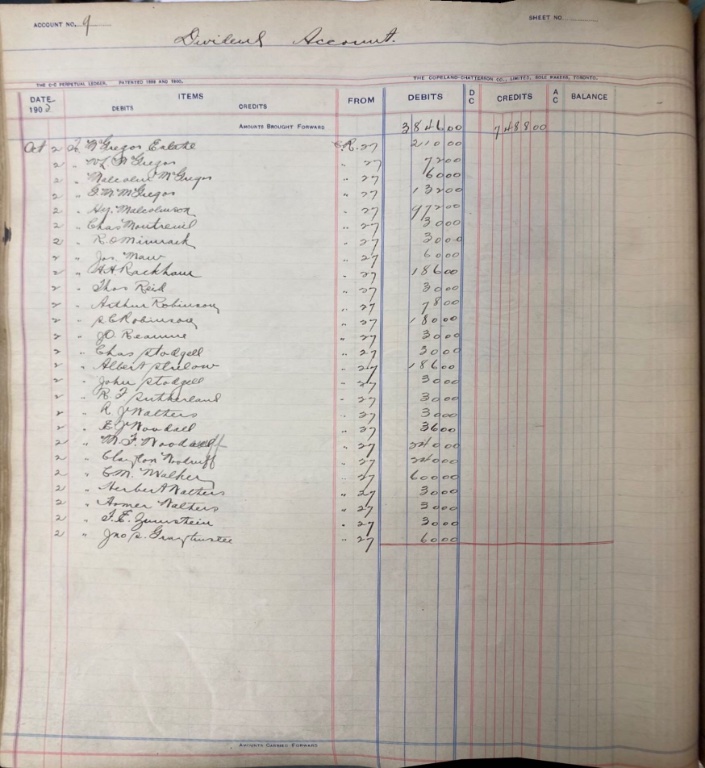 ACCOUNT NO. 9 SHEET NO.
Dividend Account.
THE C-C PERPETUAL LEDGER. PATENTED 1898 AND 1900. THE COPELAND-CHATTERSON CO., LIMITED, SOLE MAKERS, TORONTO.
DATE 1903 ITEMS DEBITS CREDITS FROM DEBITS DC CREDITS AC BALANCE
AMOUNTS BROUGHT FORWARD 3846.00 7488.00
Oct 2 To McGregor 27 210 00
2 " W L McGregor " 27 72 00
2 " Malcolm McGregor " 27 60 00
2 " G W McGregor " 27 132 00
2 " Hy. Malcolmson " 27 972 00
2 " Chas Montreuil " 27 30 00
2 " R O " 27 30 00
2 " Jos. Maw " 27 60 00
2 " Rackham " 27 186 00
2 " Thos Reid " 27 30 00
2 " Arthur Robinson " 27 78 00
2 " Robinson " 27 180 00
2 " J O Reaume " 27 30 00
2 " Chas Stodgell " 27 30 00
2 " Albert Strelow " 27 186 00
2 " John Stodgell " 27 30 00
2 " R F Sutherland " 27 30 00
2 " R J Walkers " 27 30 00
2 " E J Woodall " 27 36 00
2 " W. F. " 27 240 00
2 " Clayton Woodruff " 27 240 00
2 " C M. Walker " 27 600 00
2 " Herbert " 27 30 00
2 " Homer " 27 30 00
2 " 27 30 00
2 " Jno S. Gray trustee " 27 60 00
AMOUNTS CARRIED FORWARD